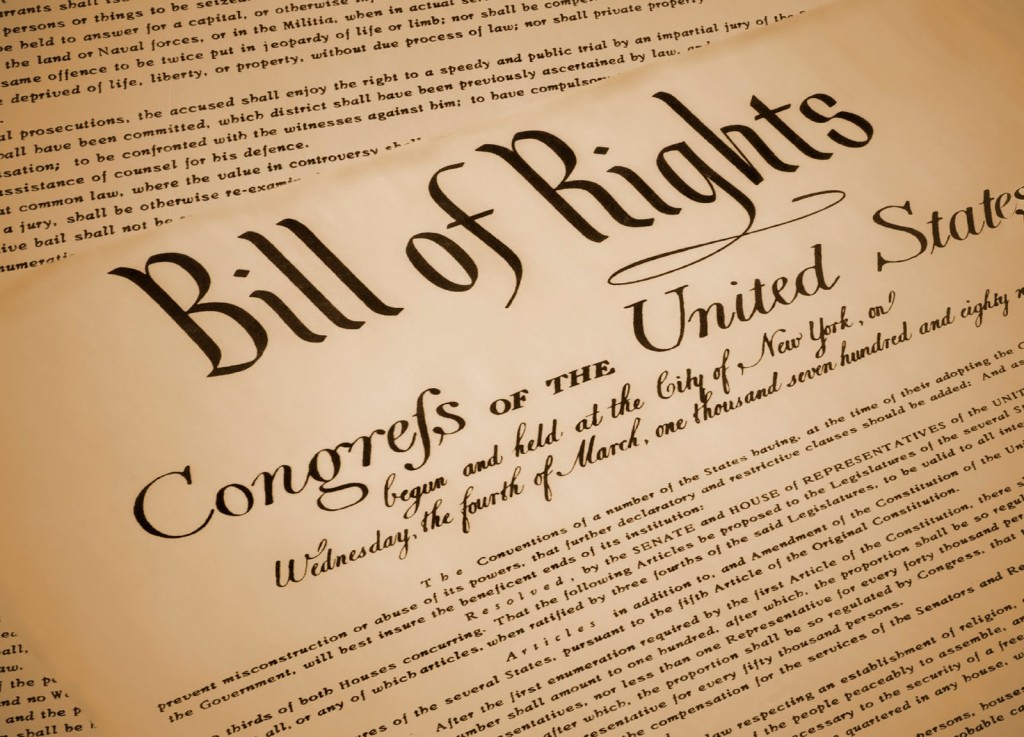 persons or things to be seized
be held to answer for a capital, or otherwise
the land or Naval forces, or in the Militia, when in actual
same offence to be twice put in jeopardy of life or limb; nor shall be
deprived of life, liberty, or property, without due process of law; nor shall private property
prosecutions, the accused shall enjoy the right to a speedy and public trial by an impartial jury of the
have been committed, which district shall have been previously ascertained by law,
to be confronted with the witnesses against him; to have
assistance of counsel for his defence.
common law, where the value in controversy
a jury, shall be otherwise
bail shall not be
Bill of Rights
Congreſs OF THE United States
begun and held at the City of New York, on
Wednesday, the fourth of March, one thousand seven hundred and eighty
The Conventions of a number of the States having, at the time of their adopting the
prevent misconstruction or abuse of its powers, that further declaratory and restrictive clauses should be added: And as
the Government, will best insure the beneficent ends of its institution:
Resolved, by the SENATE and HOUSE of REPRESENTATIVES of the
thirds of both Houses concurring. That the following Articles be proposed to the Legislatures of the several
all, or any of which articles, when ratified by three fourths of the said Legislatures, to be valid to all
Articles in addition to, and Amendment of the Constitution of the
of the several States, pursuant to the fifth Article of the Original Constitution.
After the first enumeration required by the first Article of the Constitution, there
shall amount to one hundred, after which, the proportion shall be so
nor less than one Representative for every forty thousand
after which, the proportion shall be so regulated by Congress, that
for every fifty thousand persons.
the compensation for the services of the Senators and
respecting an establishment of religion,
of the people peaceably to assemble,
to the security of a
quartered in any house,
persons,